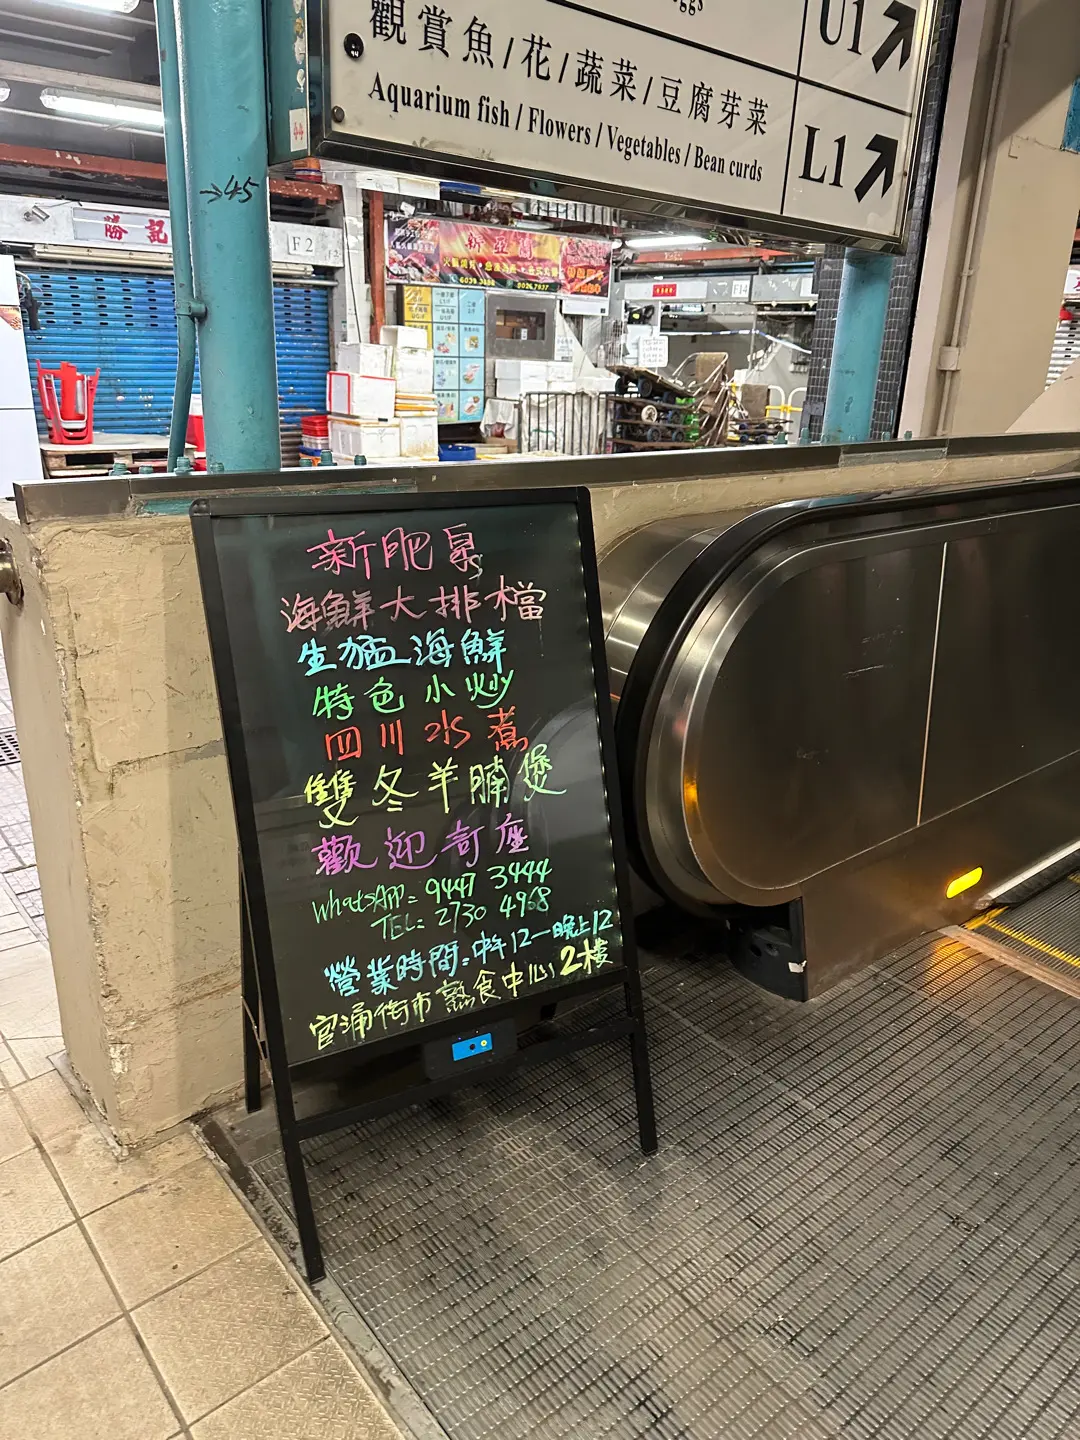 觀賞魚/花/蔬菜/豆腐芽菜
Aquarium fish / Flowers / Vegetables / Bean curds
U1
L1
→45
勝記
F2
F14
新肥泉
海鮮大排檔
生猛海鮮
特色小炒
四川水煮
雙冬羊腩煲
歡迎訂座
WhatsAPP: 9447 3444
TEL: 2730 4968
營業時間:中午12—晚上12
官涌街市熟食中心2樓